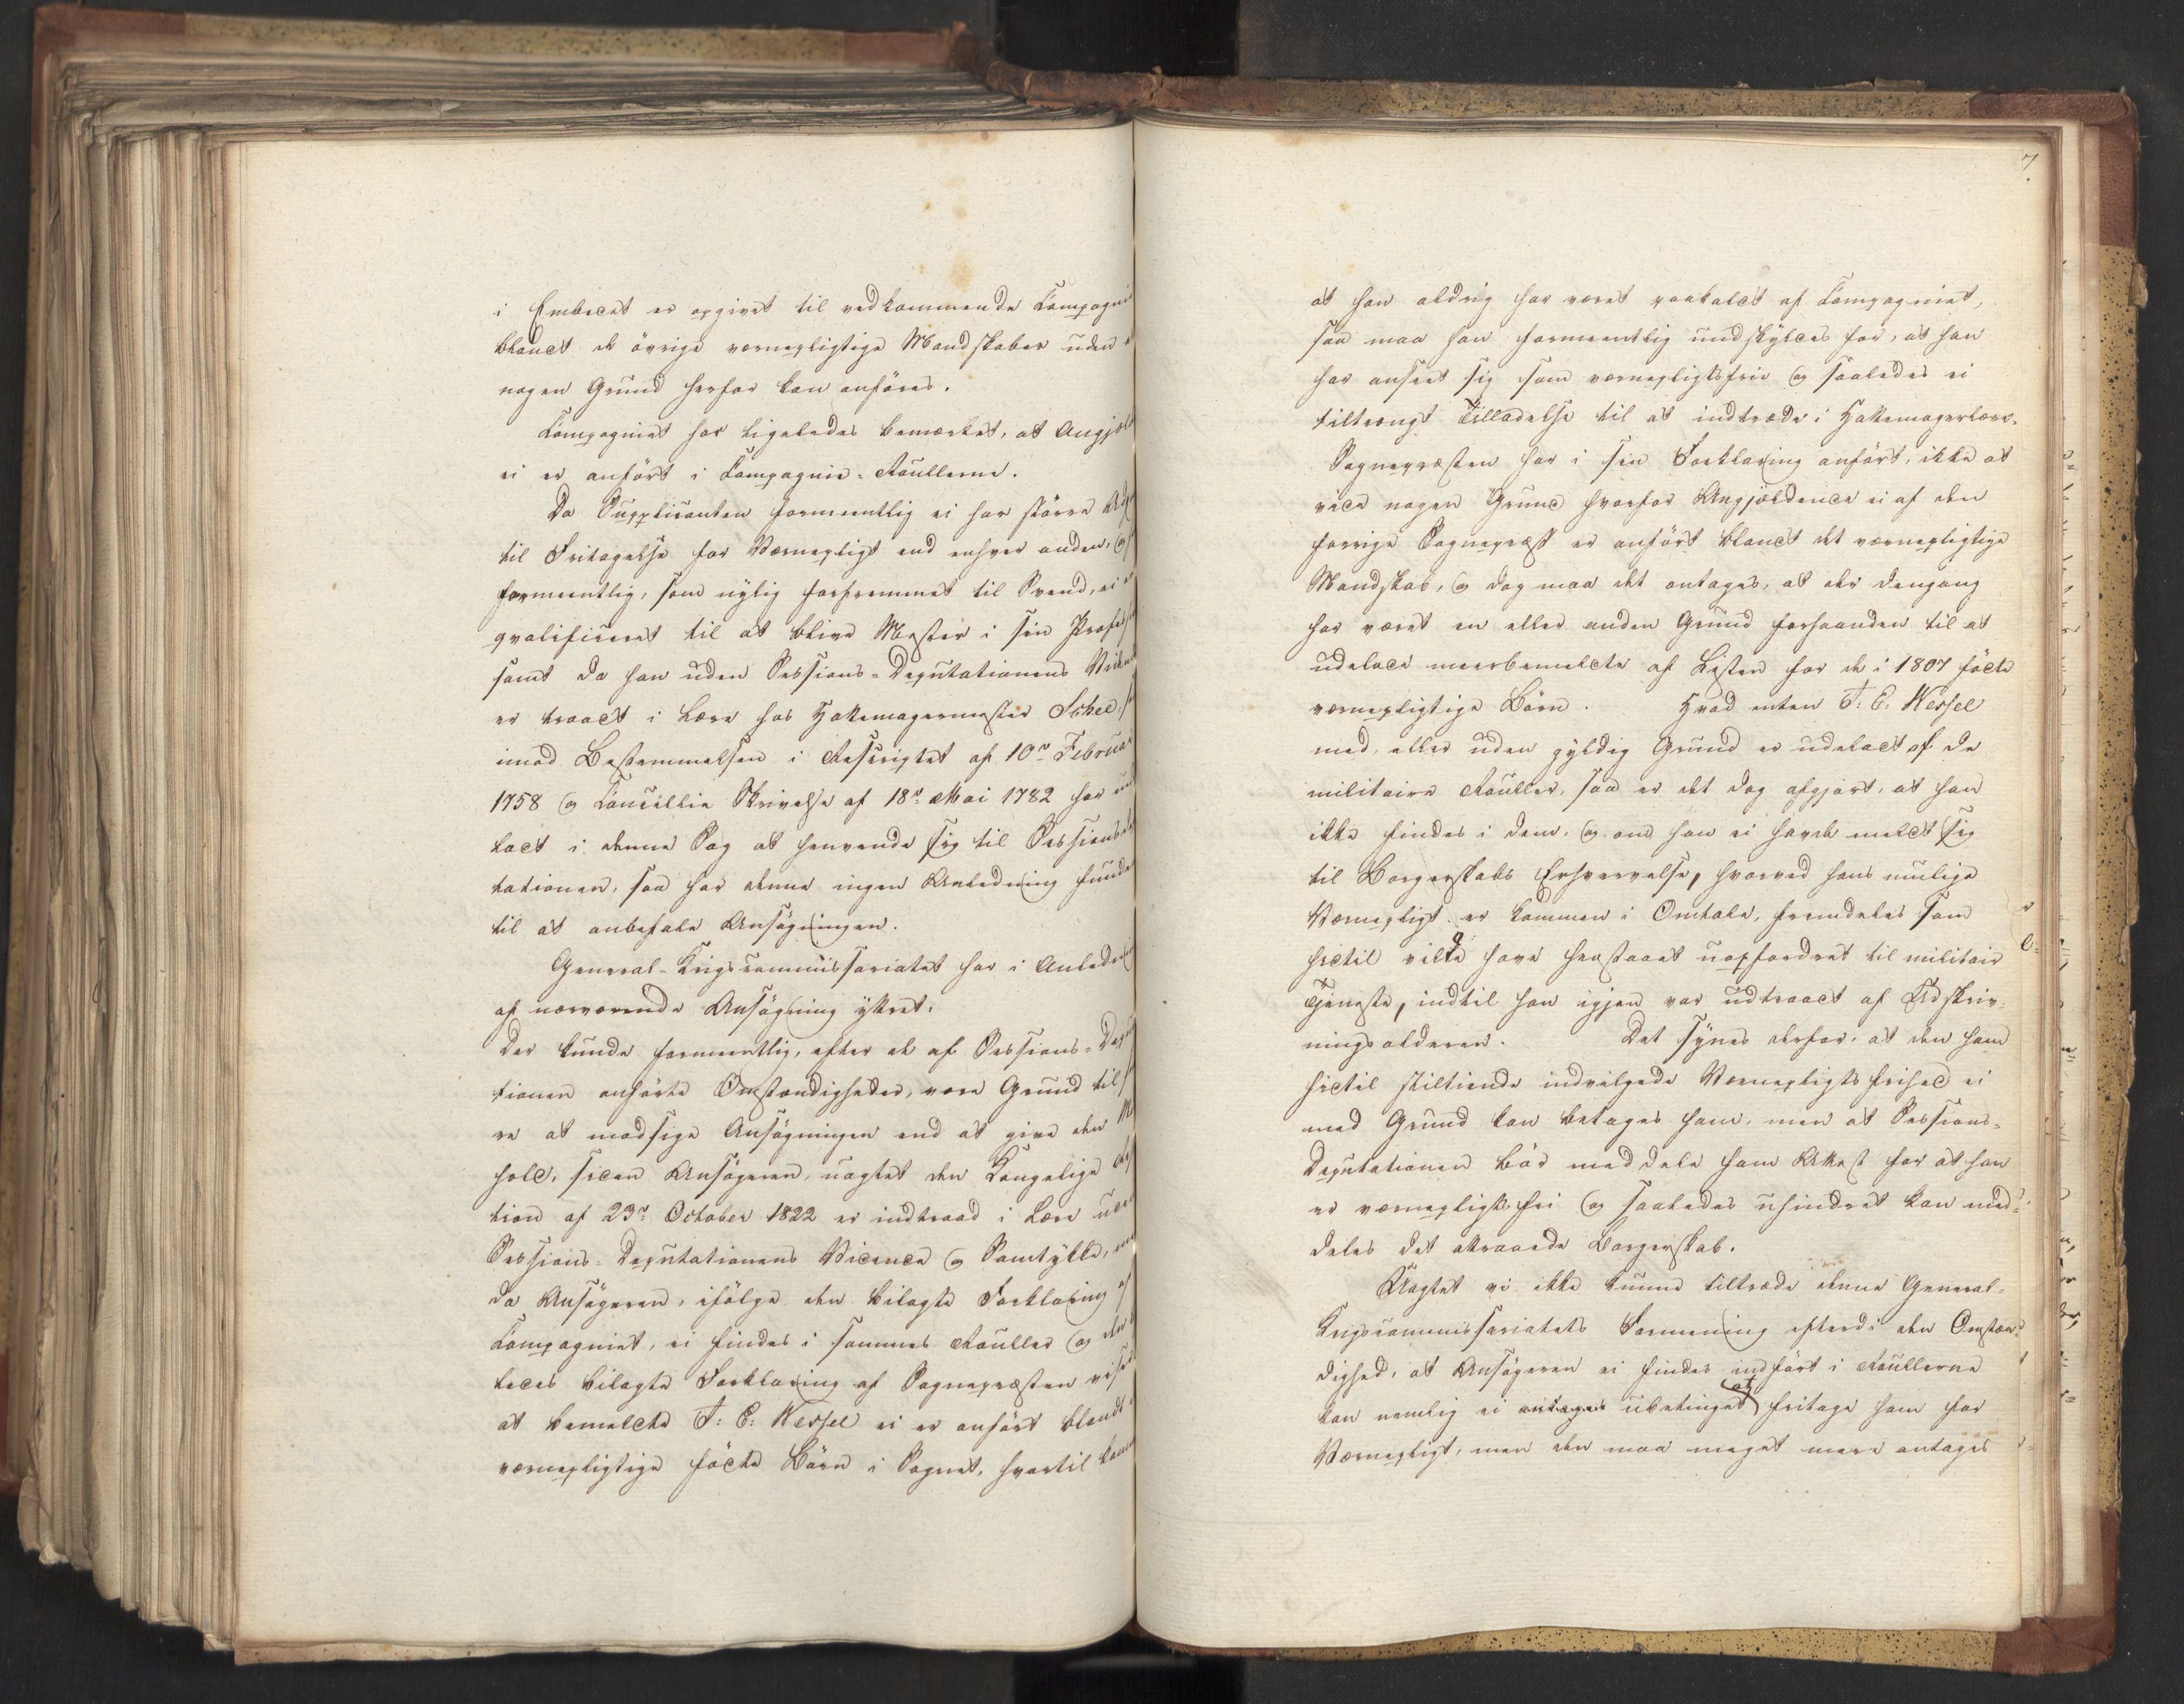 i Embedet er opgivet til vedkommende Compagni
blandt de övrige værnepligtige Mandskaber uden a
nogen Grund herfor kan anföres.
Compagniet har ligeledes bemærket, at Angjæld
ei er anfört i Compagnie-Roullerne.
Da Supplicanten formeentlig ei har större Adg
til Fritagelse for Værnepligt end enhver anden, og
formeentlig, som nylig forfremmet til Svend, ei er
qvalificeret til at blive Mester i sin Profess
samt da han uden Sessions-Deputationens Vidend
er traadt i Lære hos Hattemagermester Schee,
imod Bestemmelsen i Rescriptet af 10de Februar
1758 og Cancellie Skrivelse af 18de Mai 1782 har und
ladt i denne Sag at henvende sig til Sessionsde
tationen, saa har denne ingen Anledning funde
til at anbefale Ansögningen.
General-Krigscommissariatet har i Anledni
af nærværende Ansögning yttret:
Der kunde formeentlig, efter de af Sessions-Depu
tionen anförte Omstændigheder, være Grund til
re at modsige Ansögningen end at give den Med
hold, siden Ansögeren, uagtet den Kongelige Res
tion af 23de October 1822 er indtraad i Lære uden
Sessions-Deputationens Vidende og Samtykke, men
da Ansögeren, ifölge den bilagte Forklaring af
Compagniet, ei findes i sammes Rouller og den
ledes bilagte Forklaring af Sognepræsten viser
at bemeldte F: E: Wessel ei er anfört blandt
værnepligtige födte Börn i Sognet, hvortil kom
7.
at han aldrig har været paakaldt af Compagniet,
saa maa han formeentlig undskyldes for, at han
har anseet sig som værnepligtsfrie og saaledes ei
tiltrængt Tilladelse til at indtræde i Hattemagerlære.
Sognepræsten har i sin Forklaring anfört, ikke at
vide nogen Grund hvorfor Angjældende ei af den
forrige Sognepræst er anfört blandt det værnepligtige
Mandskab, og dog maa det antages, at der dengang
har været en eller anden Grund forhaanden til at
udelade meerbemeldte af Listen for de i 1807 födte
værnepligtige Börn. Hvad enten F: E: Wessel
med, eller uden gyldig Grund er udeladt af de
militaire Rouller, saa er det dog afgjort, at han
ikke findes i dem, og om han ei havde meldt sig
til Borgerskabs Erhvervelse, hvorved hans mulige
Værnepligt er kommen i Omtale, fremdeles som
hidtil vilde have henstaaet uopfordret til militair
Tjeneste, indtil han igjen var udtraadt af Udskriv-
ningsalderen. Det synes derfor, at den ham
hidtil stiltiende indvilgede Værnepligts frihed ei
med Grund kan betages ham, men at Sessions-
Deputationen bör meddele ham Attest for at han
er værnepligtsfri og saaledes uhindret kan med-
deles det attraaede Borgerskab.
Uagtet vi ikke kunne tiltræde denne General-
Krigscommissariatets Formening efterdi den Omstæn-
dighed, at Ansögeren ei findes indfört i Roullerne
kan nemlig ei ubetinget at fritage ham for
Værnepligt, men den maa meget mere antages